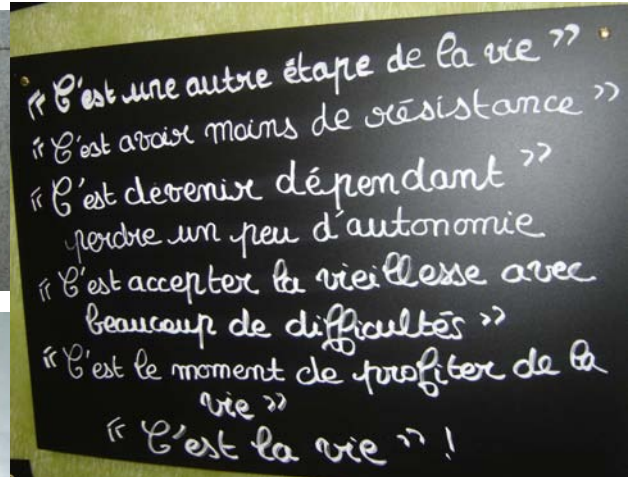 « C'est une autre étape de la vie »
« C'est avoir moins de résistance »
« C'est devenir dépendant »
perdre un peu d'autonomie
« C'est accepter la vieillesse avec
beaucoup de difficultés »
« C'est le moment de profiter de la
vie »
« C'est la vie » !